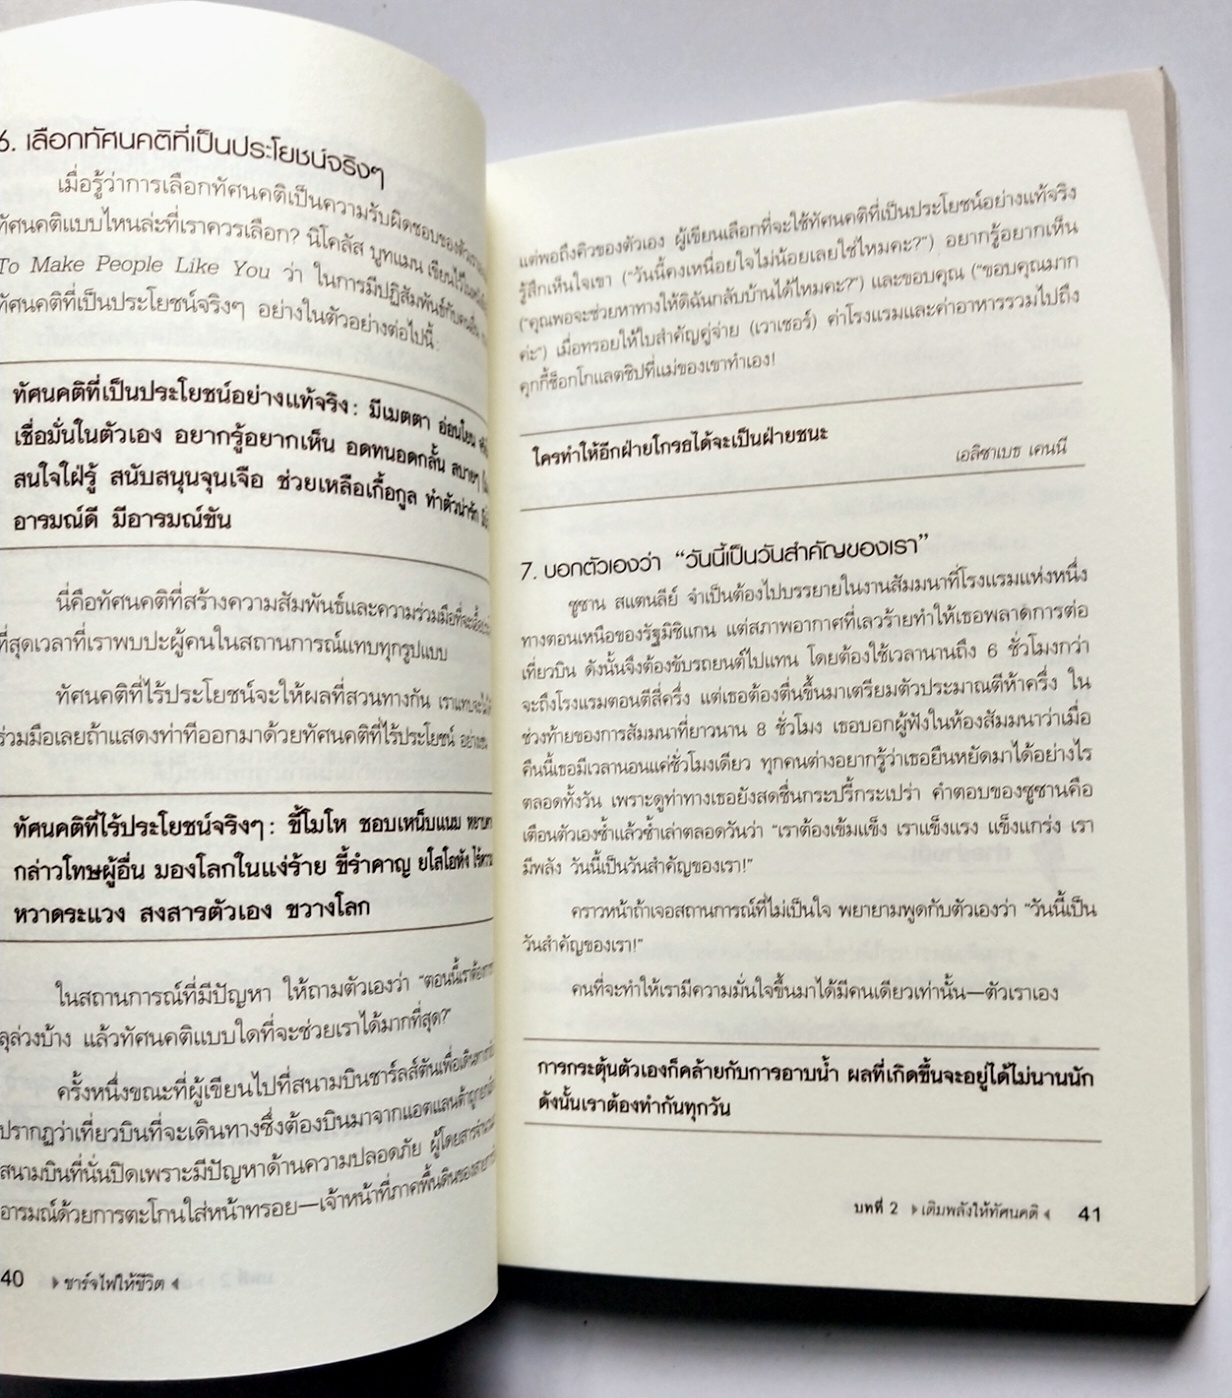 6. เลือกทัศนคติที่เป็นประโยชน์จริงๆ
เมื่อรู้ว่าการเลือกทัศนคติเป็นความรับผิดชอบของตัวเรา
ทัศนคติแบบไหนล่ะที่เราควรเลือก? นิโคลัส บูทแมน เขียนไว้ใน
To Make People Like You ว่า ในการมีปฏิสัมพันธ์กับคนอื่น
ทัศนคติที่เป็นประโยชน์จริงๆ อย่างในตัวอย่างต่อไปนี้:
ทัศนคติที่เป็นประโยชน์อย่างแท้จริง: มีเมตตา อ่อนโยน
เชื่อมั่นในตัวเอง อยากรู้อยากเห็น อดทนอดกลั้น สบายๆ
สนใจใฝ่รู้ สนับสนุนจุนเจือ ช่วยเหลือเกื้อกูล ทำตัวน่ารัก
อารมณ์ดี มีอารมณ์ขัน
นี่คือทัศนคติที่สร้างความสัมพันธ์และความร่วมมือที่จะเอื้อ
ที่สุดเวลาที่เราพบปะผู้คนในสถานการณ์แทบทุกรูปแบบ
ทัศนคติที่ไร้ประโยชน์จะให้ผลที่สวนทางกัน เราแทบจะไม่ได้
ร่วมมือเลยถ้าแสดงท่าทีออกมาด้วยทัศนคติที่ไร้ประโยชน์ อย่างเช่น
ทัศนคติที่ไร้ประโยชน์จริงๆ: ขี้โมโห ชอบเหน็บแนม หยาบคาย
กล่าวโทษผู้อื่น มองโลกในแง่ร้าย ขี้รำคาญ ยโสโอหัง
หวาดระแวง สงสารตัวเอง ขวางโลก
ในสถานการณ์ที่มีปัญหา ให้ถามตัวเองว่า "ตอนนี้เราต้องการ
ลุล่วงบ้าง แล้วทัศนคติแบบใดที่จะช่วยเราได้มากที่สุด?"
ครั้งหนึ่งขณะที่ผู้เขียนไปที่สนามบินชาร์ลส์ตันเพื่อเดินทางกลับ
ปรากฏว่าเที่ยวบินที่จะเดินทางซึ่งต้องบินมาจากแอตแลนต้าถูกยกเลิก
สนามบินที่นั่นปิดเพราะมีปัญหาด้านความปลอดภัย ผู้โดยสารจำนวน
อารมณ์ด้วยการตะโกนใส่หน้าทรอย—เจ้าหน้าที่ภาคพื้นดินของสาย
40 ชาร์จไฟให้ชีวิต
แต่พอถึงคิวของตัวเอง ผู้เขียนเลือกที่จะใช้ทัศนคติที่เป็นประโยชน์อย่างแท้จริง
รู้สึกเห็นใจเขา ("วันนี้คงเหนื่อยใจไม่น้อยเลยใช่ไหมคะ?") อยากรู้อยากเห็น
("คุณพอจะช่วยหาทางให้ดิฉันกลับบ้านได้ไหมคะ?") และขอบคุณ ("ขอบคุณมาก
ค่ะ") เมื่อทรอยให้ใบสำคัญคู่จ่าย (เวาเชอร์) ค่าโรงแรมและค่าอาหารรวมไปถึง
คุกกี้ช็อกโกแลตชิปที่แม่ของเขาทำเอง!
ใครทำให้อีกฝ่ายโกรธได้จะเป็นฝ่ายชนะ
เอลิซาเบธ เคนนี
7. บอกตัวเองว่า "วันนี้เป็นวันสำคัญของเรา"
ซูซาน สแตนลีย์ จำเป็นต้องไปบรรยายในงานสัมมนาที่โรงแรมแห่งหนึ่ง
ทางตอนเหนือของรัฐมิชิแกน แต่สภาพอากาศที่เลวร้ายทำให้เธอพลาดการต่อ
เที่ยวบิน ดังนั้นจึงต้องขับรถยนต์ไปแทน โดยต้องใช้เวลานานถึง 6 ชั่วโมงกว่า
จะถึงโรงแรมตอนตีสี่ครึ่ง แต่เธอต้องตื่นขึ้นมาเตรียมตัวประมาณตีห้าครึ่ง ใน
ช่วงท้ายของการสัมมนาที่ยาวนาน 8 ชั่วโมง เธอบอกผู้ฟังในห้องสัมมนาว่าเมื่อ
คืนนี้เธอมีเวลานอนแค่ชั่วโมงเดียว ทุกคนต่างอยากรู้ว่าเธอยืนหยัดมาได้อย่างไร
ตลอดทั้งวัน เพราะดูท่าทางเธอยังสดชื่นกระปรี้กระเปร่า คำตอบของซูซานคือ
เตือนตัวเองซ้ำแล้วซ้ำเล่าตลอดวันว่า "เราต้องเข้มแข็ง เราแข็งแรง แข็งแกร่ง เรา
มีพลัง วันนี้เป็นวันสำคัญของเรา!"
คราวหน้าถ้าเจอสถานการณ์ที่ไม่เป็นใจ พยายามพูดกับตัวเองว่า "วันนี้เป็น
วันสำคัญของเรา!"
คนที่จะทำให้เรามีความมั่นใจขึ้นมาได้มีคนเดียวเท่านั้น—ตัวเราเอง
การกระตุ้นตัวเองก็คล้ายกับการอาบน้ำ ผลที่เกิดขึ้นจะอยู่ได้ไม่นานนัก
ดังนั้นเราต้องทำกันทุกวัน
บทที่ 2 เติมพลังให้ทัศนคติ 41